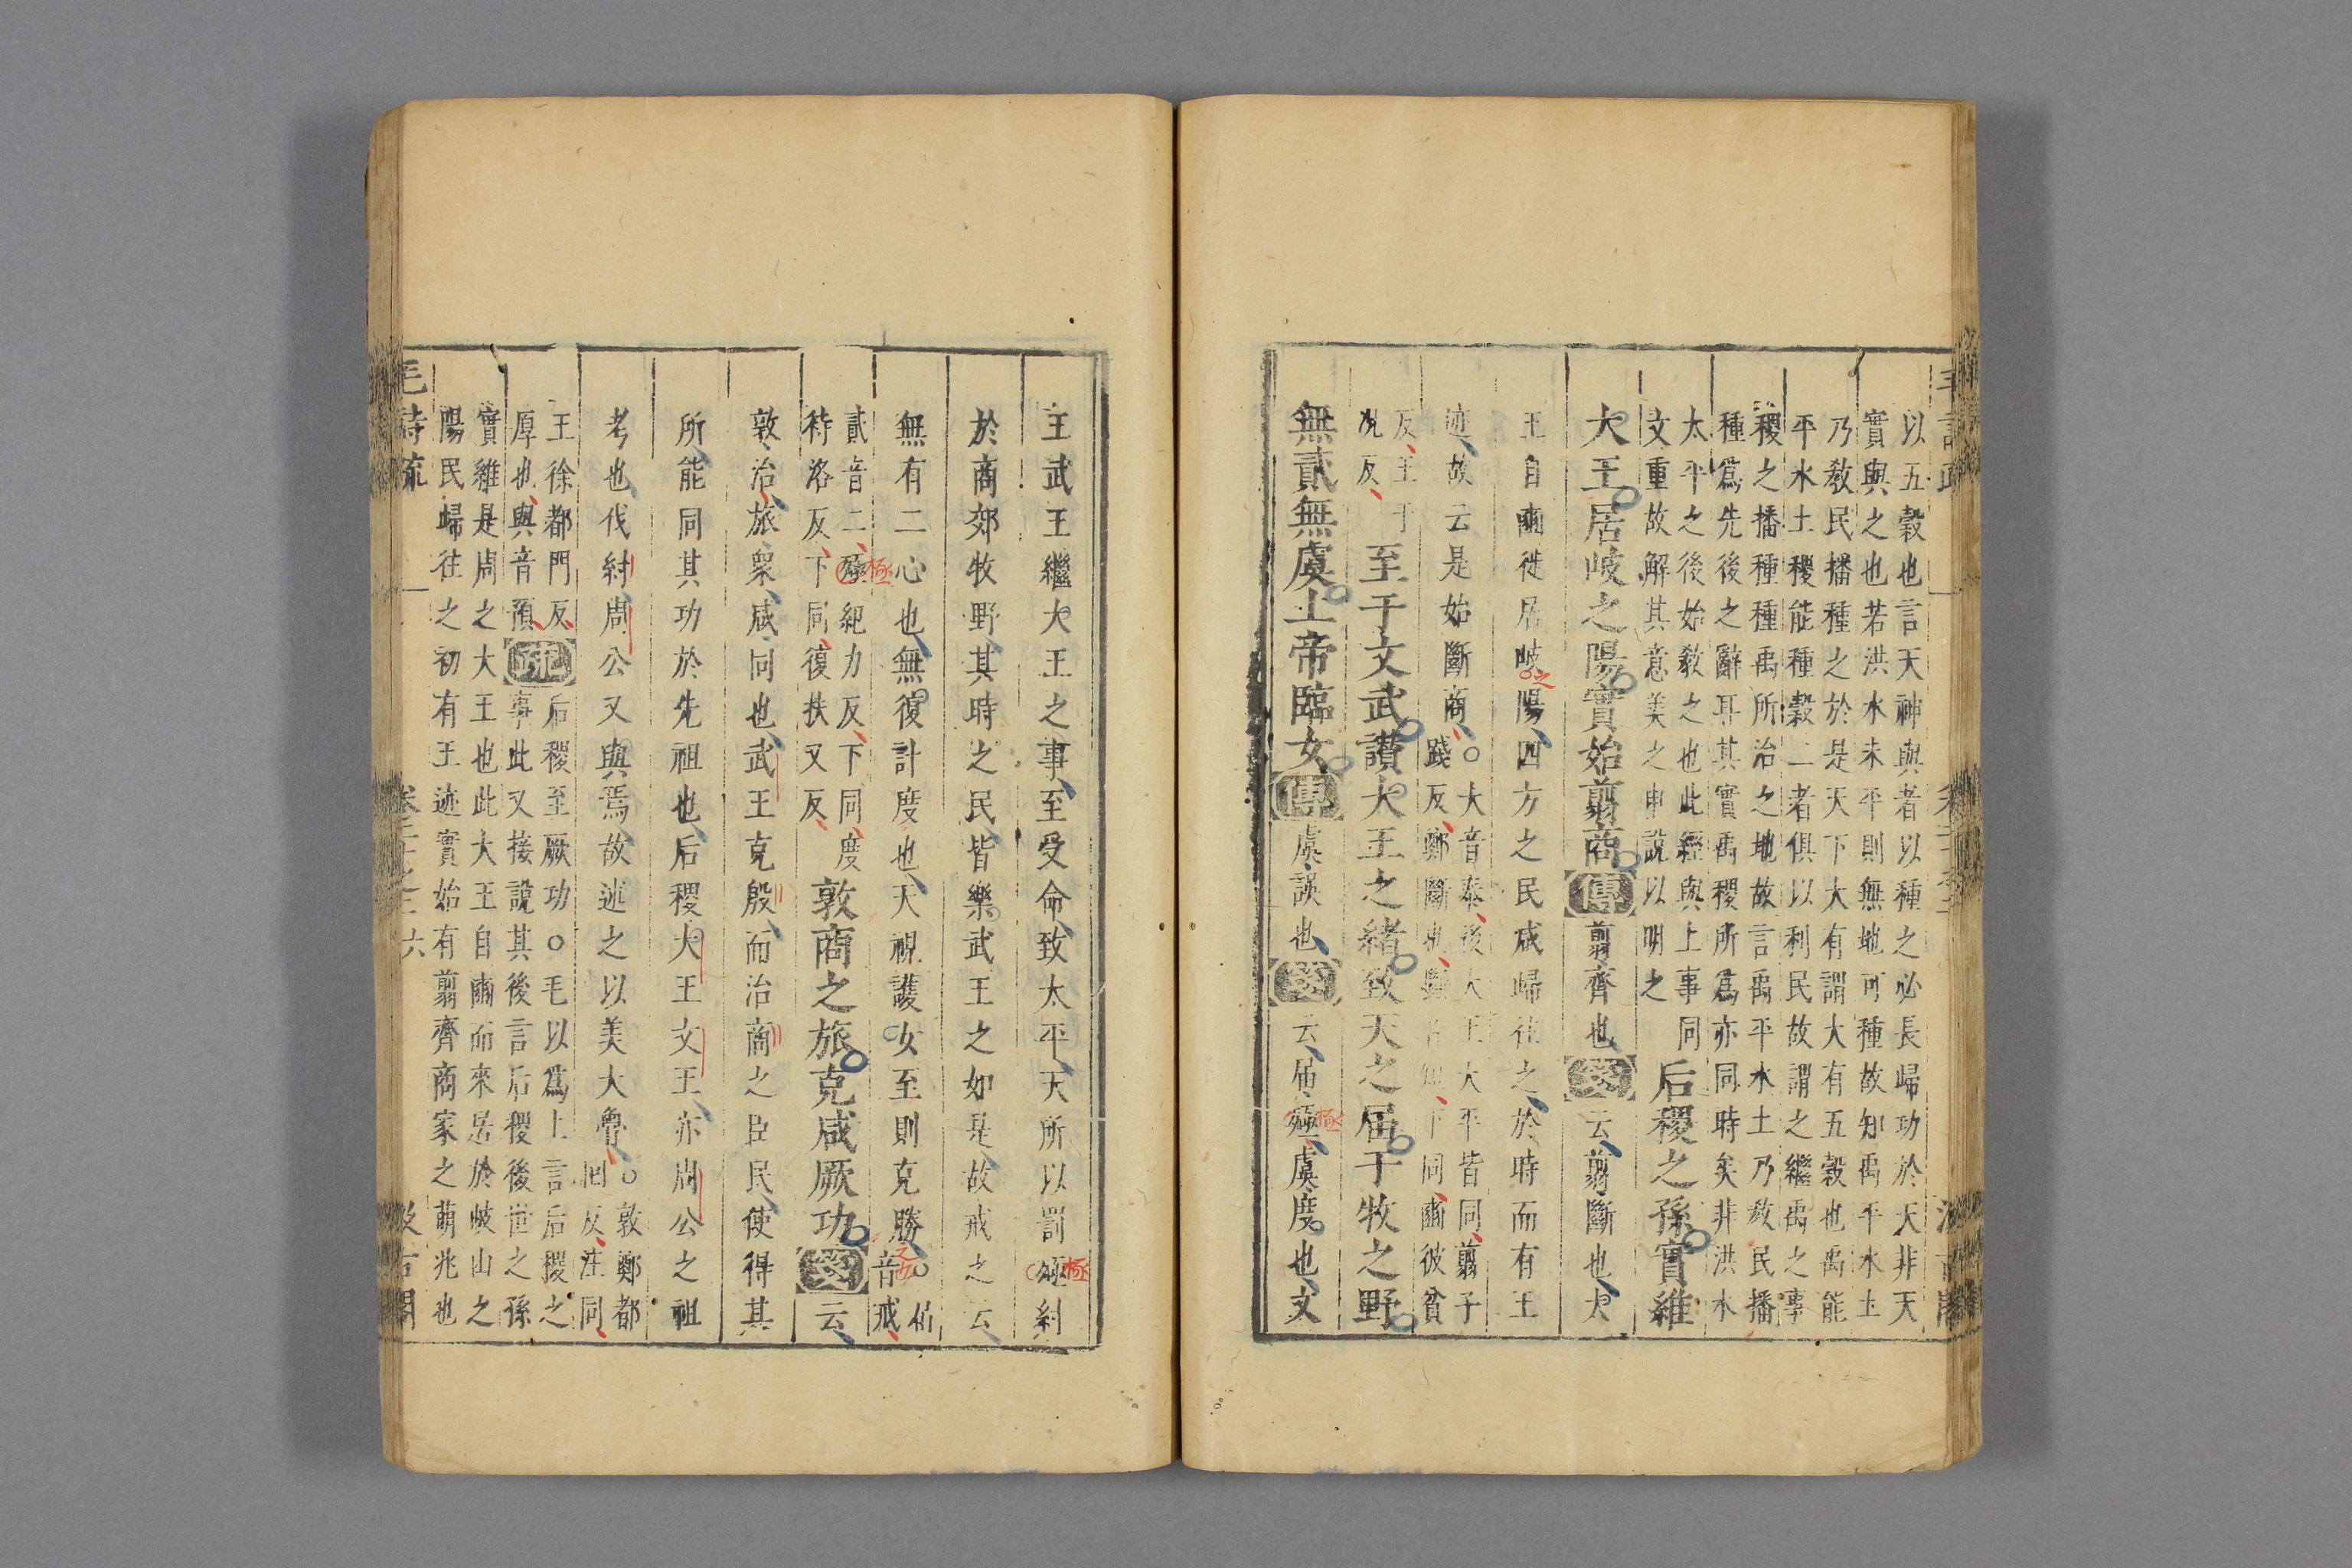 以五穀也言天神與者以種之必長歸功於天非天
實與之也若洪水未平則無地可種故知禹平水土
乃敎民播種之於是天下大有謂大有五穀也禹能
平水土稷能種穀二者俱以利民故謂之繼禹之事
稷之播種種禹所治之地故言禹平水土乃敎民播
種爲先後之辭耳其實禹稷所爲亦同時矣非洪水
太平之後始敎之也此經與上事同
文重故解其意美之申說以明之
后稷之孫實維
大王居岐之陽實始翦商傳翦齊也箋云翦斷也大
王自豳徙居岐陽四方之民咸歸往之於時而有王
之
迹故云是始斷商
○大音泰後大王大平皆同翦子
踐反鄭斷也斷音短下同豳彼貧
反王于
况反
至于文武讃大王之緒致天之届于牧之野
無貳無虞上帝臨女傳虞誤也箋云届殛虞度也文
極
王武王繼大王之事至受命致太平天所以罰殛紂
極
於商郊牧野其時之民皆樂武王之如是故戒之云
無有二心也無復計度也天視護女至則克勝
○届
音戒
貳音二殛紀力反下同度
極
待洛反下同復扶又反
敦商之旅克咸厥功箋云
敦治旅衆咸同也武王克殷而治商之臣民使得其
所能同其功於先祖也后稷大王文王亦周公之祖
考也伐紂周公又與焉故述之以美大魯
○敦鄭都
回反注同
王徐都門反
厚也與音預
疏
后稷至厥功○毛以爲上言后稷之
事此又接說其後言后稷後世之孫
實維是周之大王也此大王自豳而來居於岐山之
陽民歸往之初有王迹實始有翦齊商家之萌兆也
毛詩疏
卷二十之二
六
汲古閣